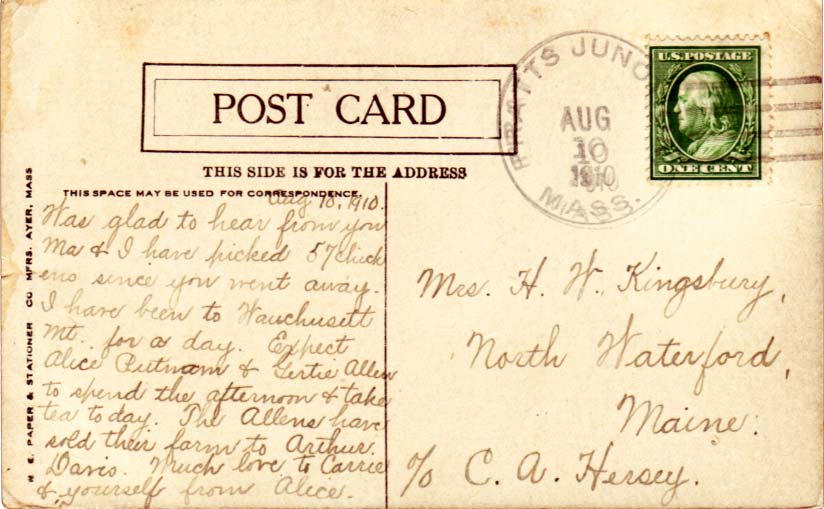 POST CARD
THIS SIDE IS FOR THE ADDRESS
THIS SPACE MAY BE USED FOR CORRESPONDENCE.
Aug 10, 1910.
Was glad to hear from you
Ma & I have picked 57 chick
ens since you went away.
I have been to Wauchusett
Mt. for a day. Expect
Alice Putnam & Gertie Allen
to spend the afternoon & take
tea today. The Allens have
sold their farm to Arthur
Davis. Much love to Carrie
& yourself from Alice.
N. E. PAPER & STATIONER CO MFRS. AYER, MASS
PRATTS JUNC
AUG
10
1910
MASS.
U.S. POSTAGE
ONE CENT
Mrs. H. W. Kingsbury,
North Waterford,
Maine.
c/o C. A. Hersey.